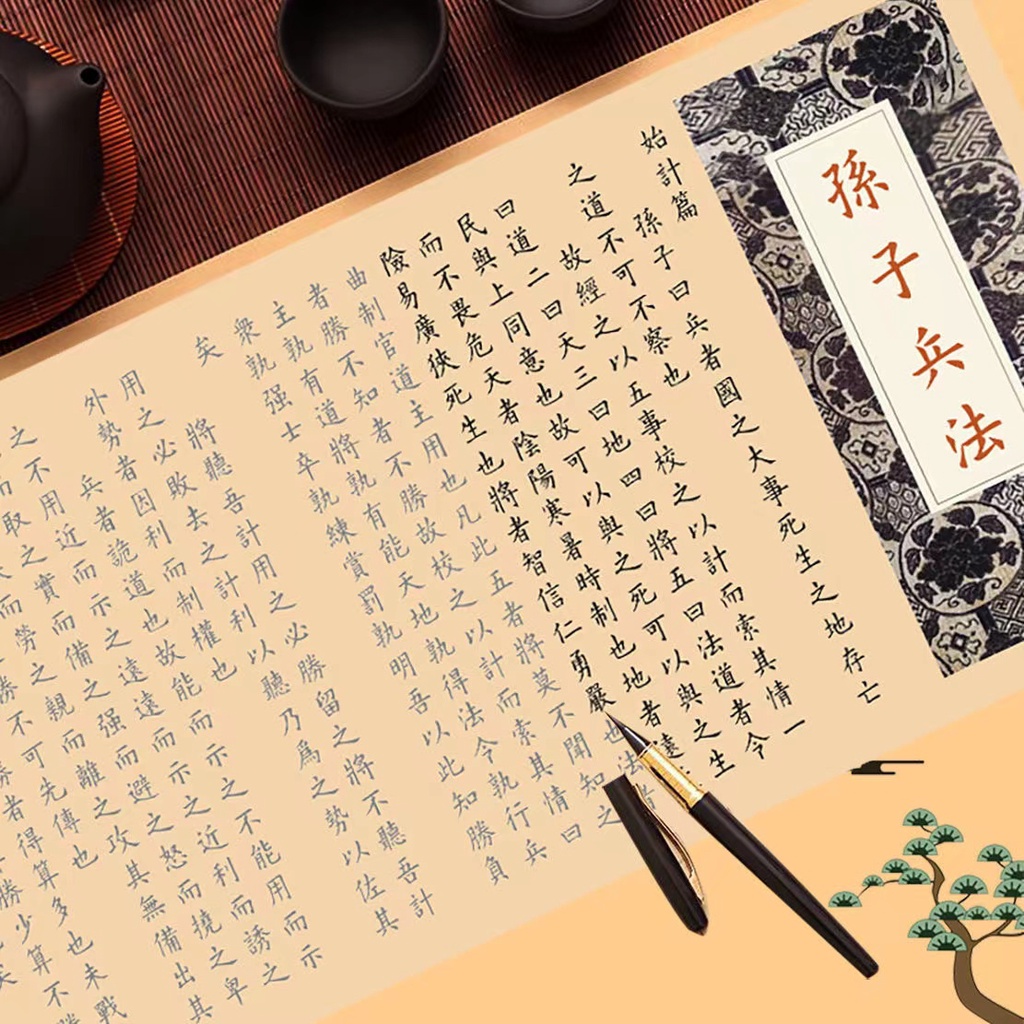 孫子兵法
始計篇
孫子曰兵者國之大事死生之地存亡
之道不可不察也
故經之以五事校之以計而索其情一
曰道二曰天三曰地四曰將五曰法道者令
民與上同意也故可以與之死可以與之生
而不畏危天者陰陽寒暑時制也地者遠
險易廣狹死生也將者智信仁勇嚴也法
曲制官道主用也凡此五者將莫不聞知之
者勝不知者不勝故校之以計而索其情曰
主孰有道將孰有能天地孰得法令孰行兵
衆孰强士卒孰練賞罰孰明吾以此知勝負
矣
將聽吾計用之必勝留之將不聽吾計
用之必敗去之計利以聽乃爲之勢以佐其
外勢者因利而制權也
兵者詭道也故能而示之不能用而示
之不用近而示之遠遠而示之近利而誘之
而取之實而備之强而避之怒而撓之卑
而勞之親而離之攻其無備出其
勝不可先傳也
勝者得算多也未戰
勝少算不勝